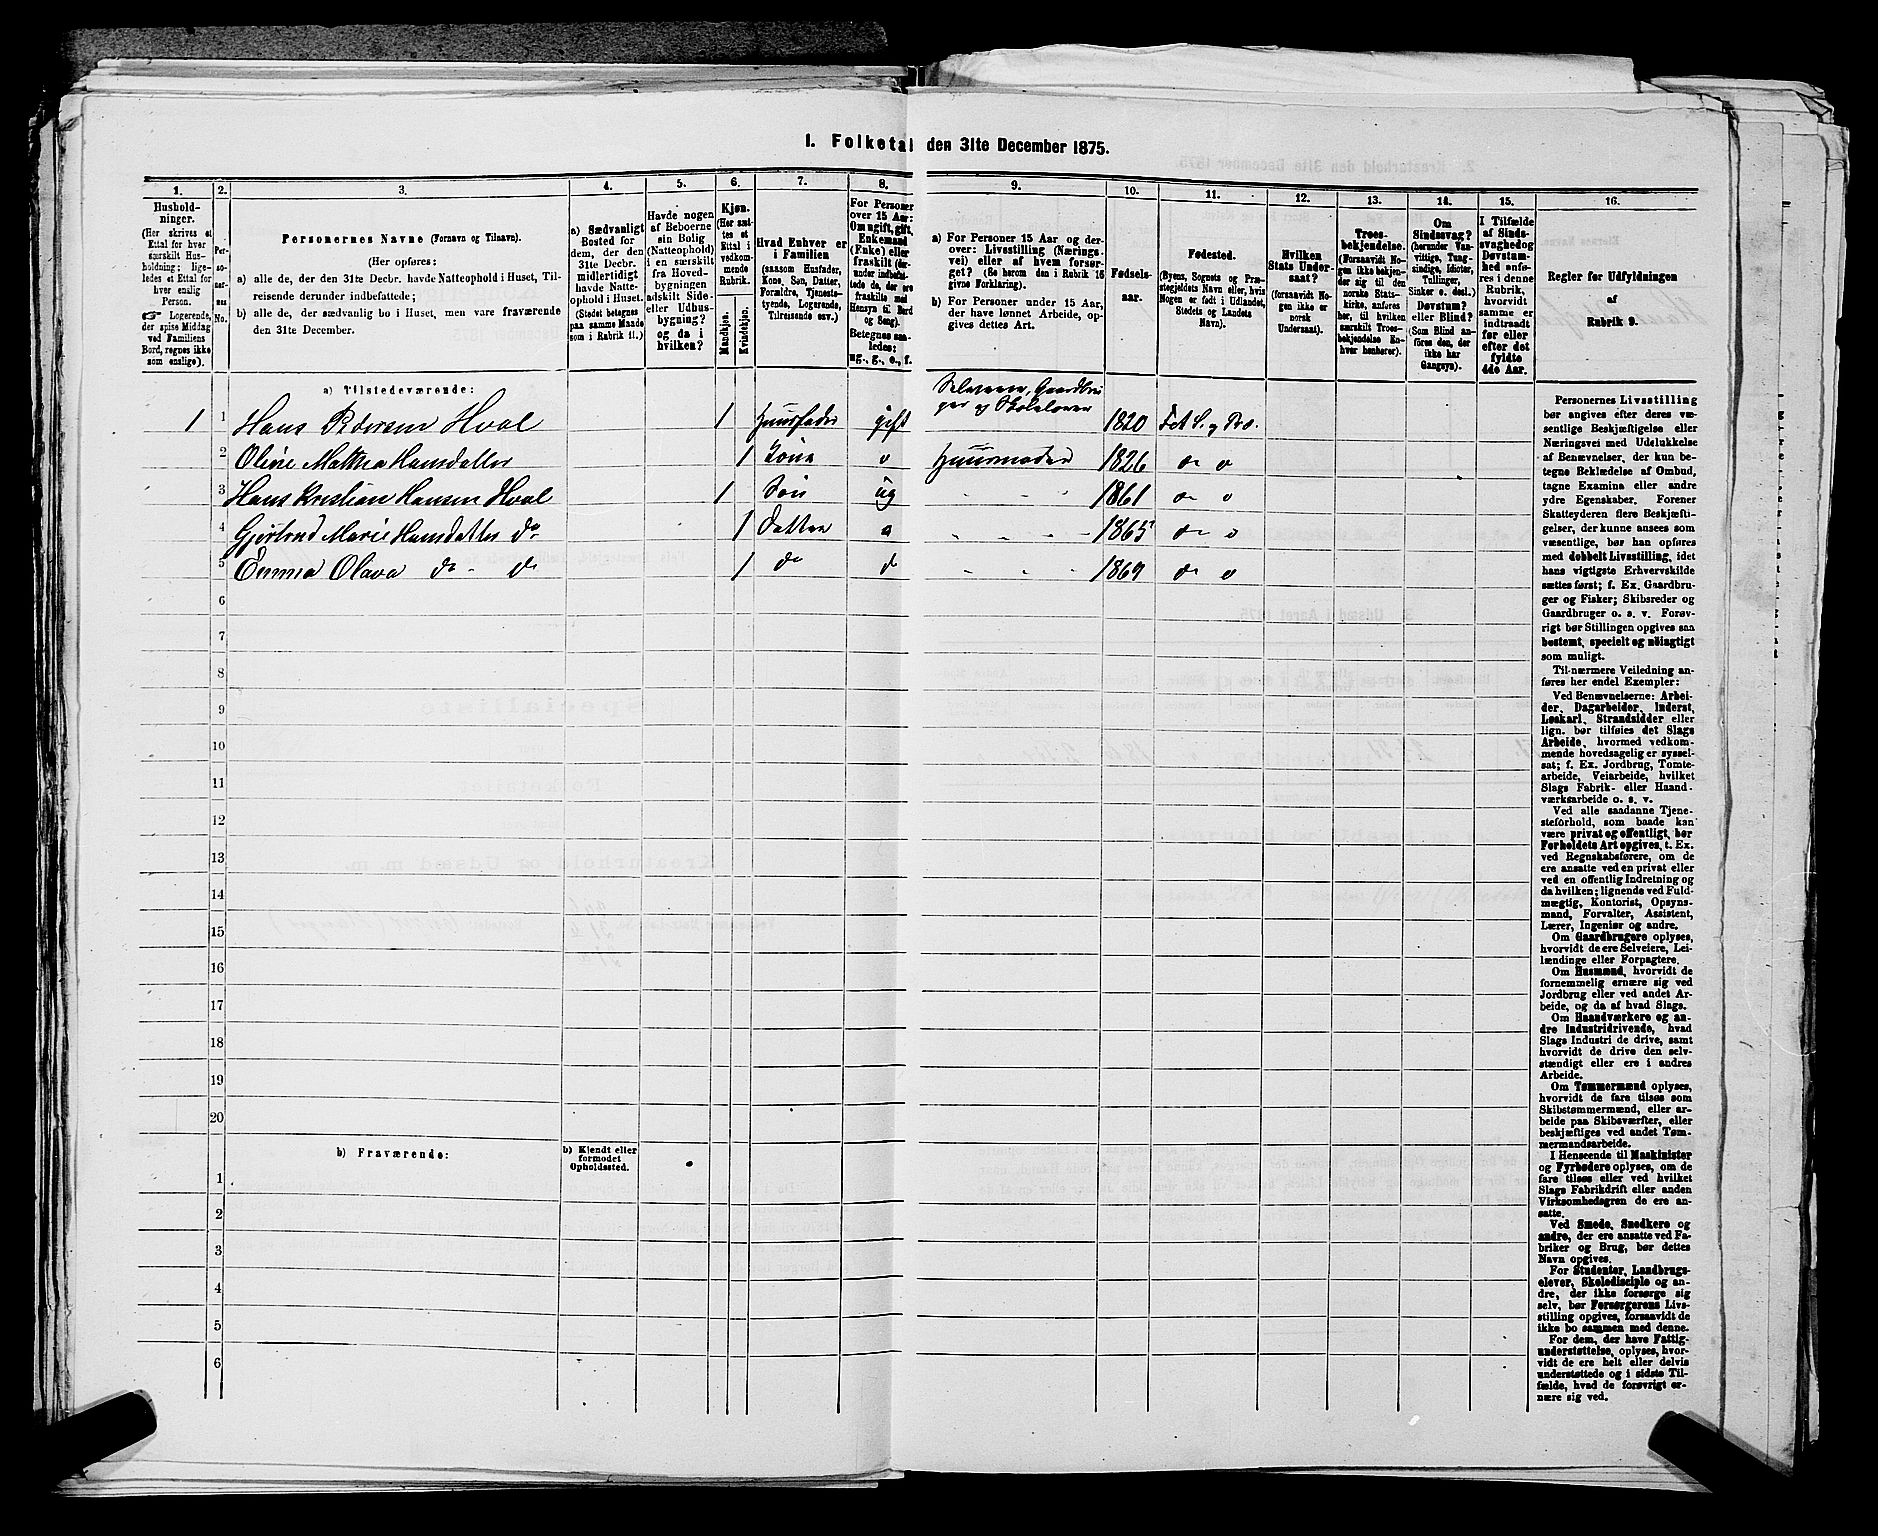 I. Folketal den 31te December 1875.
1. 2. 3. 4. 5. 6. 7. 8. 9. 10. 11. 12. 13. 14. 15. 16.
Hushold-
ninger.
(Her skrives et
Ettal for hver
særskilt Hus-
holdning; lige-
ledes et Ettal for
hver enslig
Person.
☞ Logerende,
der spise Middag
ved Familiens
Bord, regnes ikke
som enslige).
Per-
so-
ner-
nes
No.
Personernes Navne (Fornavn og Tilnavn).
(Her opføres:
a) alle de, der den 31te Decbr. havde Natteophold i Huset, Til-
reisende derunder indbefattede;
b) alle de, der sædvanlig bo i Huset, men vare fraværende
den 31te December.
a) Sædvanligt
Bosted for
dem, der den
31te Decbr.
midlertidigt
havde Natte-
ophold i Huset.
(Stedet betegnes
paa samme Maade
som i Rubrik 11.)
Havde nogen
af Beboerne
sin Bolig
(Natteophold)
i en særskilt
fra Hoved-
bygningen
adskilt Side-
eller Udhus-
bygning?
og da i
hvilken?
Kjøn.
(Her sæt-
tes et
Ettal i
vedkom-
mende
Rubrik.
Mandkjøn.
Kvindekjøn.
Hvad Enhver er
i Familien
(saasom Husfader,
Kone, Søn, Datter,
Forældre, Tjeneste-
tyende, Logerende,
Tilreisende osv.)
For Personer
over 15 Aar:
Om ugift, gift,
Enkemand
(Enke) eller
fraskilt (der-
under indbefat-
tede de, der ere
fraskilte med
Hensyn til Bord
og Seng).
Betegnes saa-
ledes:
ug., g., e., f.
a) For Personer 15 Aar og der-
over: Livsstilling (Nærings-
vei) eller af hvem forsør-
get? (Se herom den i Rubrik 16
givne Forklaring).
b) For Personer under 15 Aar,
der have lønnet Arbeide, op-
gives dettes Art.
Fødsels-
aar.
Fødested.
(Byens, Sognets og Præ-
stegjeldets Navn eller, hvis
Nogen er født i Udlandet,
Stedets og Landets
Navn).
Hvilken
Stats Under-
saat?
(forsaavidt No-
gen ikke er
norsk
Undersaat).
Troes-
bekjendelse.
(Forsaavidt No-
gen ikke bekjen-
der sig til den
norske Stats-
kirke, anføres
her, til hvilken
særskilt Troes-
bekjendelse En-
hver henhører).
Om
Sindssvag?
(herunder Van-
vittige, Tung-
sindige, Idioter,
Tullinger,
Sinker o. desl.)
Døvstum?
eller Blind?
(Som Blind an-
føres den, der
ikke har
Gangsyn).
I Tilfælde
af Sinds-
svaghed og
Døvstum-
hed anfø-
res i denne
Rubrik,
hvorvidt
samme er
indtraadt
før eller
efter det
fyldte
4de Aar.
Regler for Udfyldningen
af
Rubrik 9.
a) Tilstedeværende:
Selveier, Gaardbru
ger og
1 1 Hans Pedersen Hval 1 Huusfader gift 1820 Fet S. og Præ.
2 Oline Mathea Hansdatter 1 Kone o Huusmoder 1826 do o
3 Hans Kristian Hansen Hval 1 Søn ug - - - 1861 do o
4 Gjertrud Marie Hansdatter do 1 Datter o - - - - 1865 do o
5 Emma Olava do - do 1 do do - - - 1869 do o
6
7
8
9
10
11
12
13
14
15
16
17
18
19
20
b) Fraværende:
b) Kjendt eller
formodet
Opholdssted.
1
2
3
4
5
6
Personernes Livsstilling
bør angives efter deres væ-
sentlige Beskjæftigelse eller
Næringsvei med Udelukkelse
af Benævnelser, der kun be-
tegne Beklædelse af Ombud,
tagne Examina eller andre
ydre Egenskaber. Forener
Skatteyderen flere Beskjæfti-
gelser, der kunne ansees som
væsentlige, bør han opføres
med dobbelt Livsstilling, idet
hans vigtigste Erhvervskilde
sættes først; f. Ex. Gaardbru-
ger og Fisker; Skibsreder og
Gaardbruger o. s. v. Forøv-
rigt bør Stillingen opgives saa
bestemt, specielt og nöiagtigt
som muligt.
Til nærmere Veiledning an-
føres her endel Exempler:
Ved Benævnelserne: Arbei-
der, Dagarbeider, Inderst,
Løskarl, Strandsidder eller
lign. bør tilføies det Slags
Arbeide, hvormed vedkom-
mende hovedsagelig er syssel-
sat; f. Ex. Jordbrug, Tomte-
arbeide, Veiarbeide, hvilket
Slags Fabrik- eller Haand-
værksarbeide o. s. v.
Ved alle saadanne Tjene-
steforhold, som baade kan
være privat og offentligt, bør
Forholdets Art opgives, t. Ex.
ved Regnskabsførere, om de
ere ansatte ved en privat eller
ved en offentlig Indretning og
da hvilken; lignende ved Fuld-
mægtig, Kontorist, Opsyns-
mand, Forvalter, Assistent,
Lærer, Ingeniør og andre.
Om Gaardbrugere oplyses,
hvorvidt de ere Selveiere, Lei-
lændinge eller Forpagtere.
Om Husmænd, hvorvidt de
fornemmelig ernære sig ved
Jordbrug eller ved andet Ar-
beide, og da af hvad Slags.
Om Haandværkere og an-
dre Industridrivende, hvad
Slags Industri de drive, samt
hvorvidt de drive den selv-
stændigt eller ere i andres
Arbeide.
Om Tømmermænd oplyses,
hvorvidt de fare tilsøs som
Skibstømmermænd, eller ar-
beide paa Skibsværfter, eller
beskjæftiges ved andet Tøm-
mermandsarbeide.
I Henseende til Maskinister
og Fyrbødere oplyses, om de
fare tilsøs eller ved hvilket
Slags Fabrikdrift eller anden
Virksomhedsgren de ere an-
satte.
Ved Smede, Snedkere og
andre, der ere ansatte ved Fa-
briker og Brug, bør dettes
Navn opgives.
For Studenter, Landbrugs-
elever, Skoledisciple og an-
dre, der ikke forsørge sig
selv, bør Forsørgerens Livs-
stilling opgives, forsaavidt de
ikke bo sammen med denne.
For dem, der have Fattig-
understøttelse, oplyses, hvor-
vidt de ere helt eller delvis
understøttede og i sidste Til-
fælde, hvad de forøvrigt er-
nære sig ved.